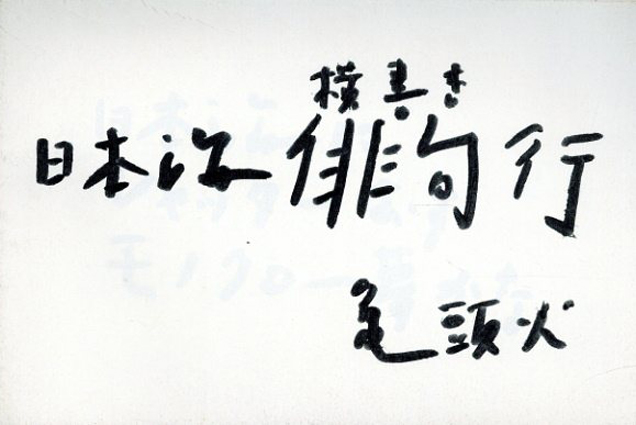 横書き
日本海俳句行
亀頭火